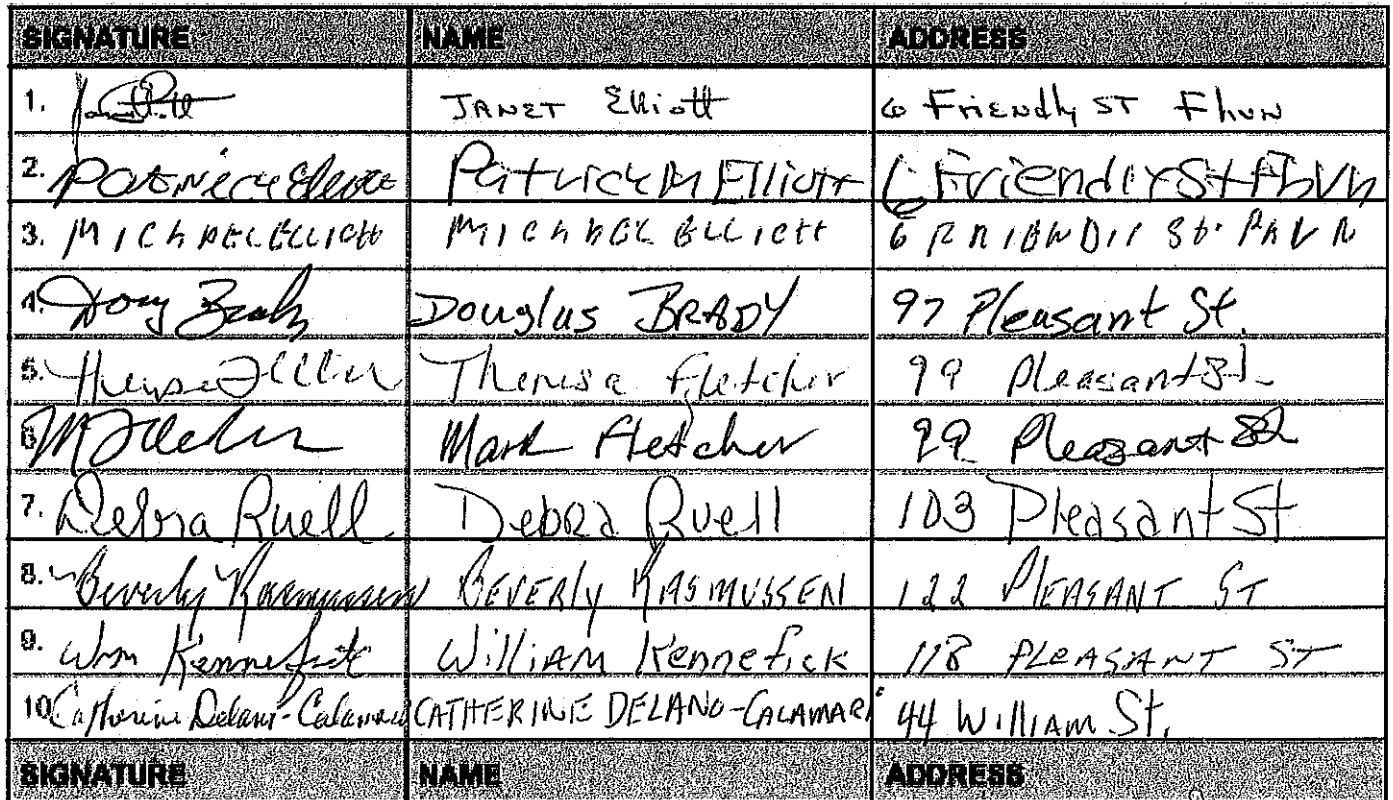 SIGNATURE NAME ADDRESS
1. JANET Elliott 6 Friendly ST Fhvn
2. Patrick Elliott Patrick M Elliott 6 Friendly St Fhvn
3. MICHAEL ELLIOTT MICHAEL ELLIOTT 6 FRIENDLY St.
4. Doug Brady Douglas BRADY 97 Pleasant St.
5. Theresa Fletcher 99 Pleasant St.
6. Mark Fletcher 99 Pleasant St
7. Debra Ruell Debra Ruell 103 Pleasant St
8. Beverly Rasmussen BEVERLY RASMUSSEN 122 PLEASANT ST
9. Wm Kennefick WilliAM Kennefick 118 PLEASANT ST
10. Catherine Delano-Calamari CATHERINE DELANO-CALAMARI 44 WilliAM St.
SIGNATURE NAME ADDRESS